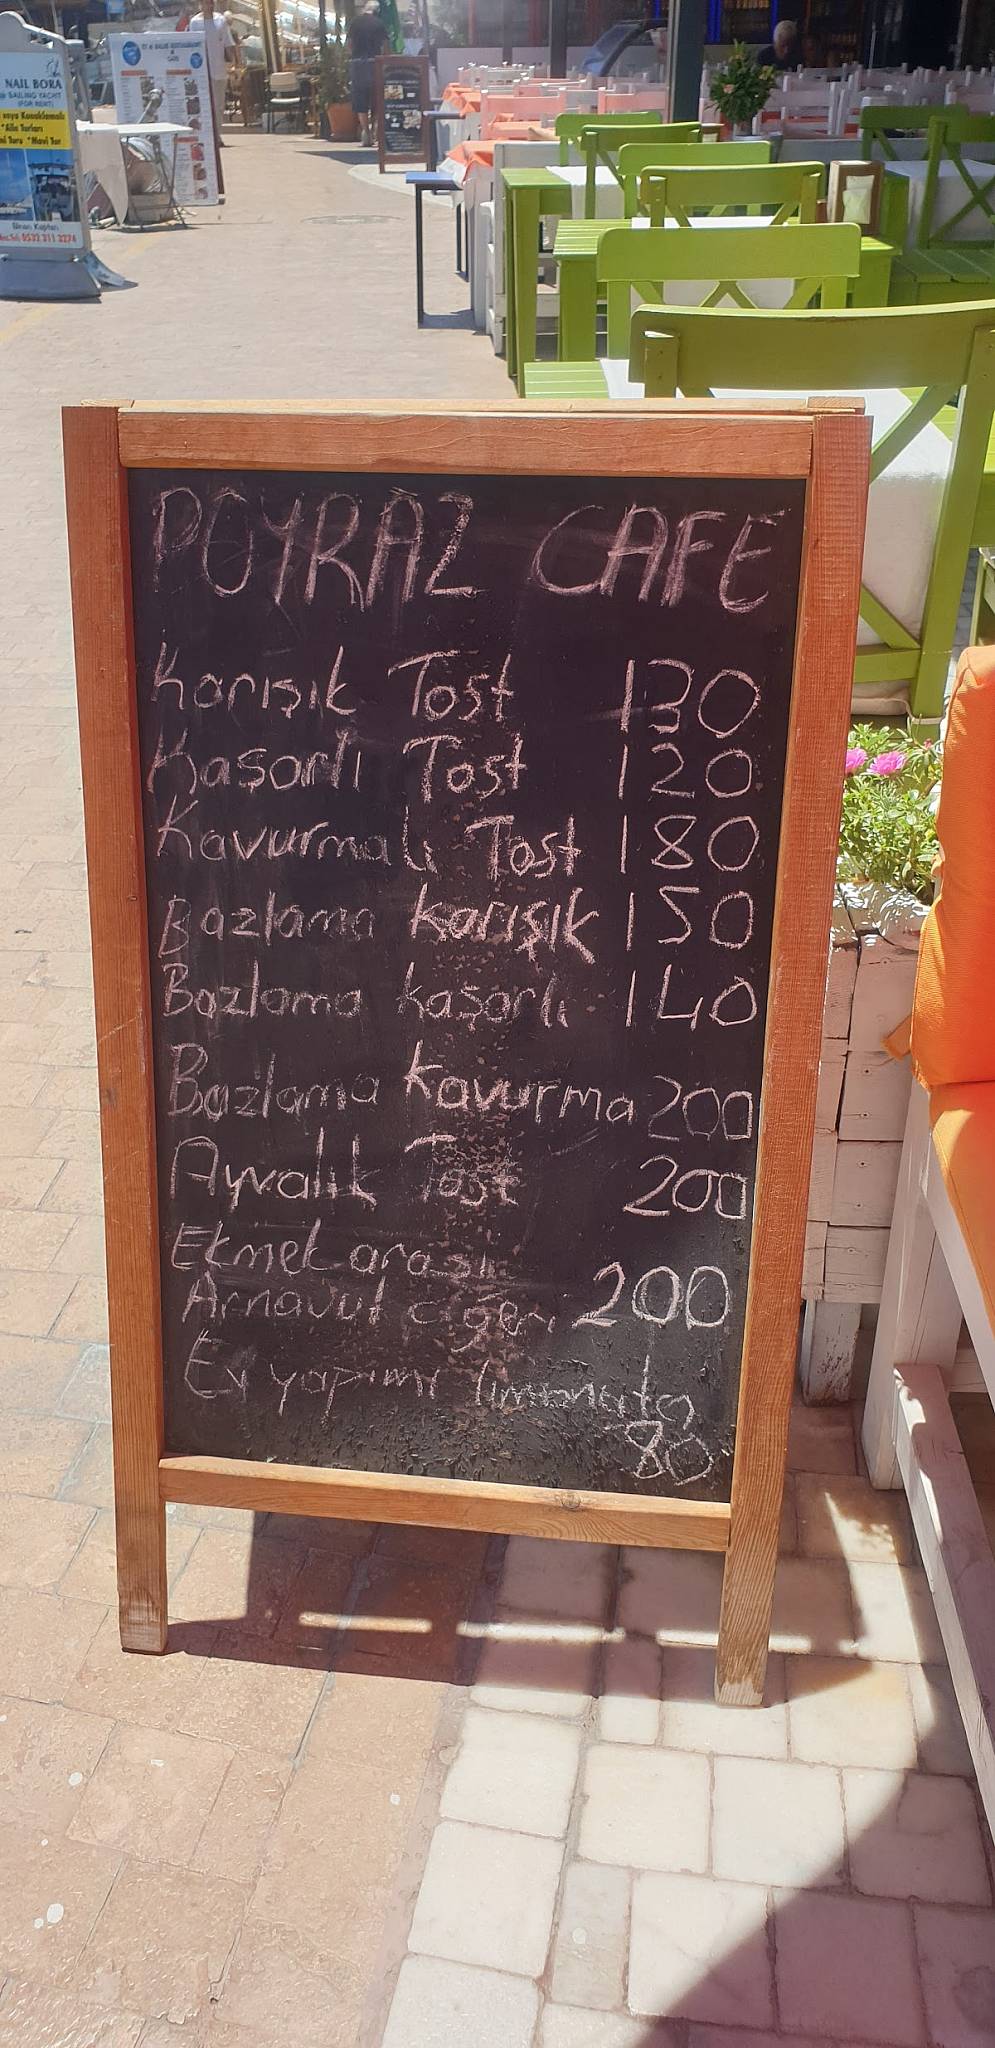 NAIL BORA
SAILING YACHT
(FOR RENT)
veya Konaklamalı
*Aile Turları
*Mavi Tur
0532 311 3274
POYRAZ CAFE
Karışık Tost 130
Kaşarlı Tost 120
Kavurmalı Tost 180
Bazlama karışık 150
Bazlama kaşarlı 140
Bazlama kavurma 200
Ayvalık Tost 200
Ekmek arası
Arnavut ciğeri 200
Ev yapımı limonata
80